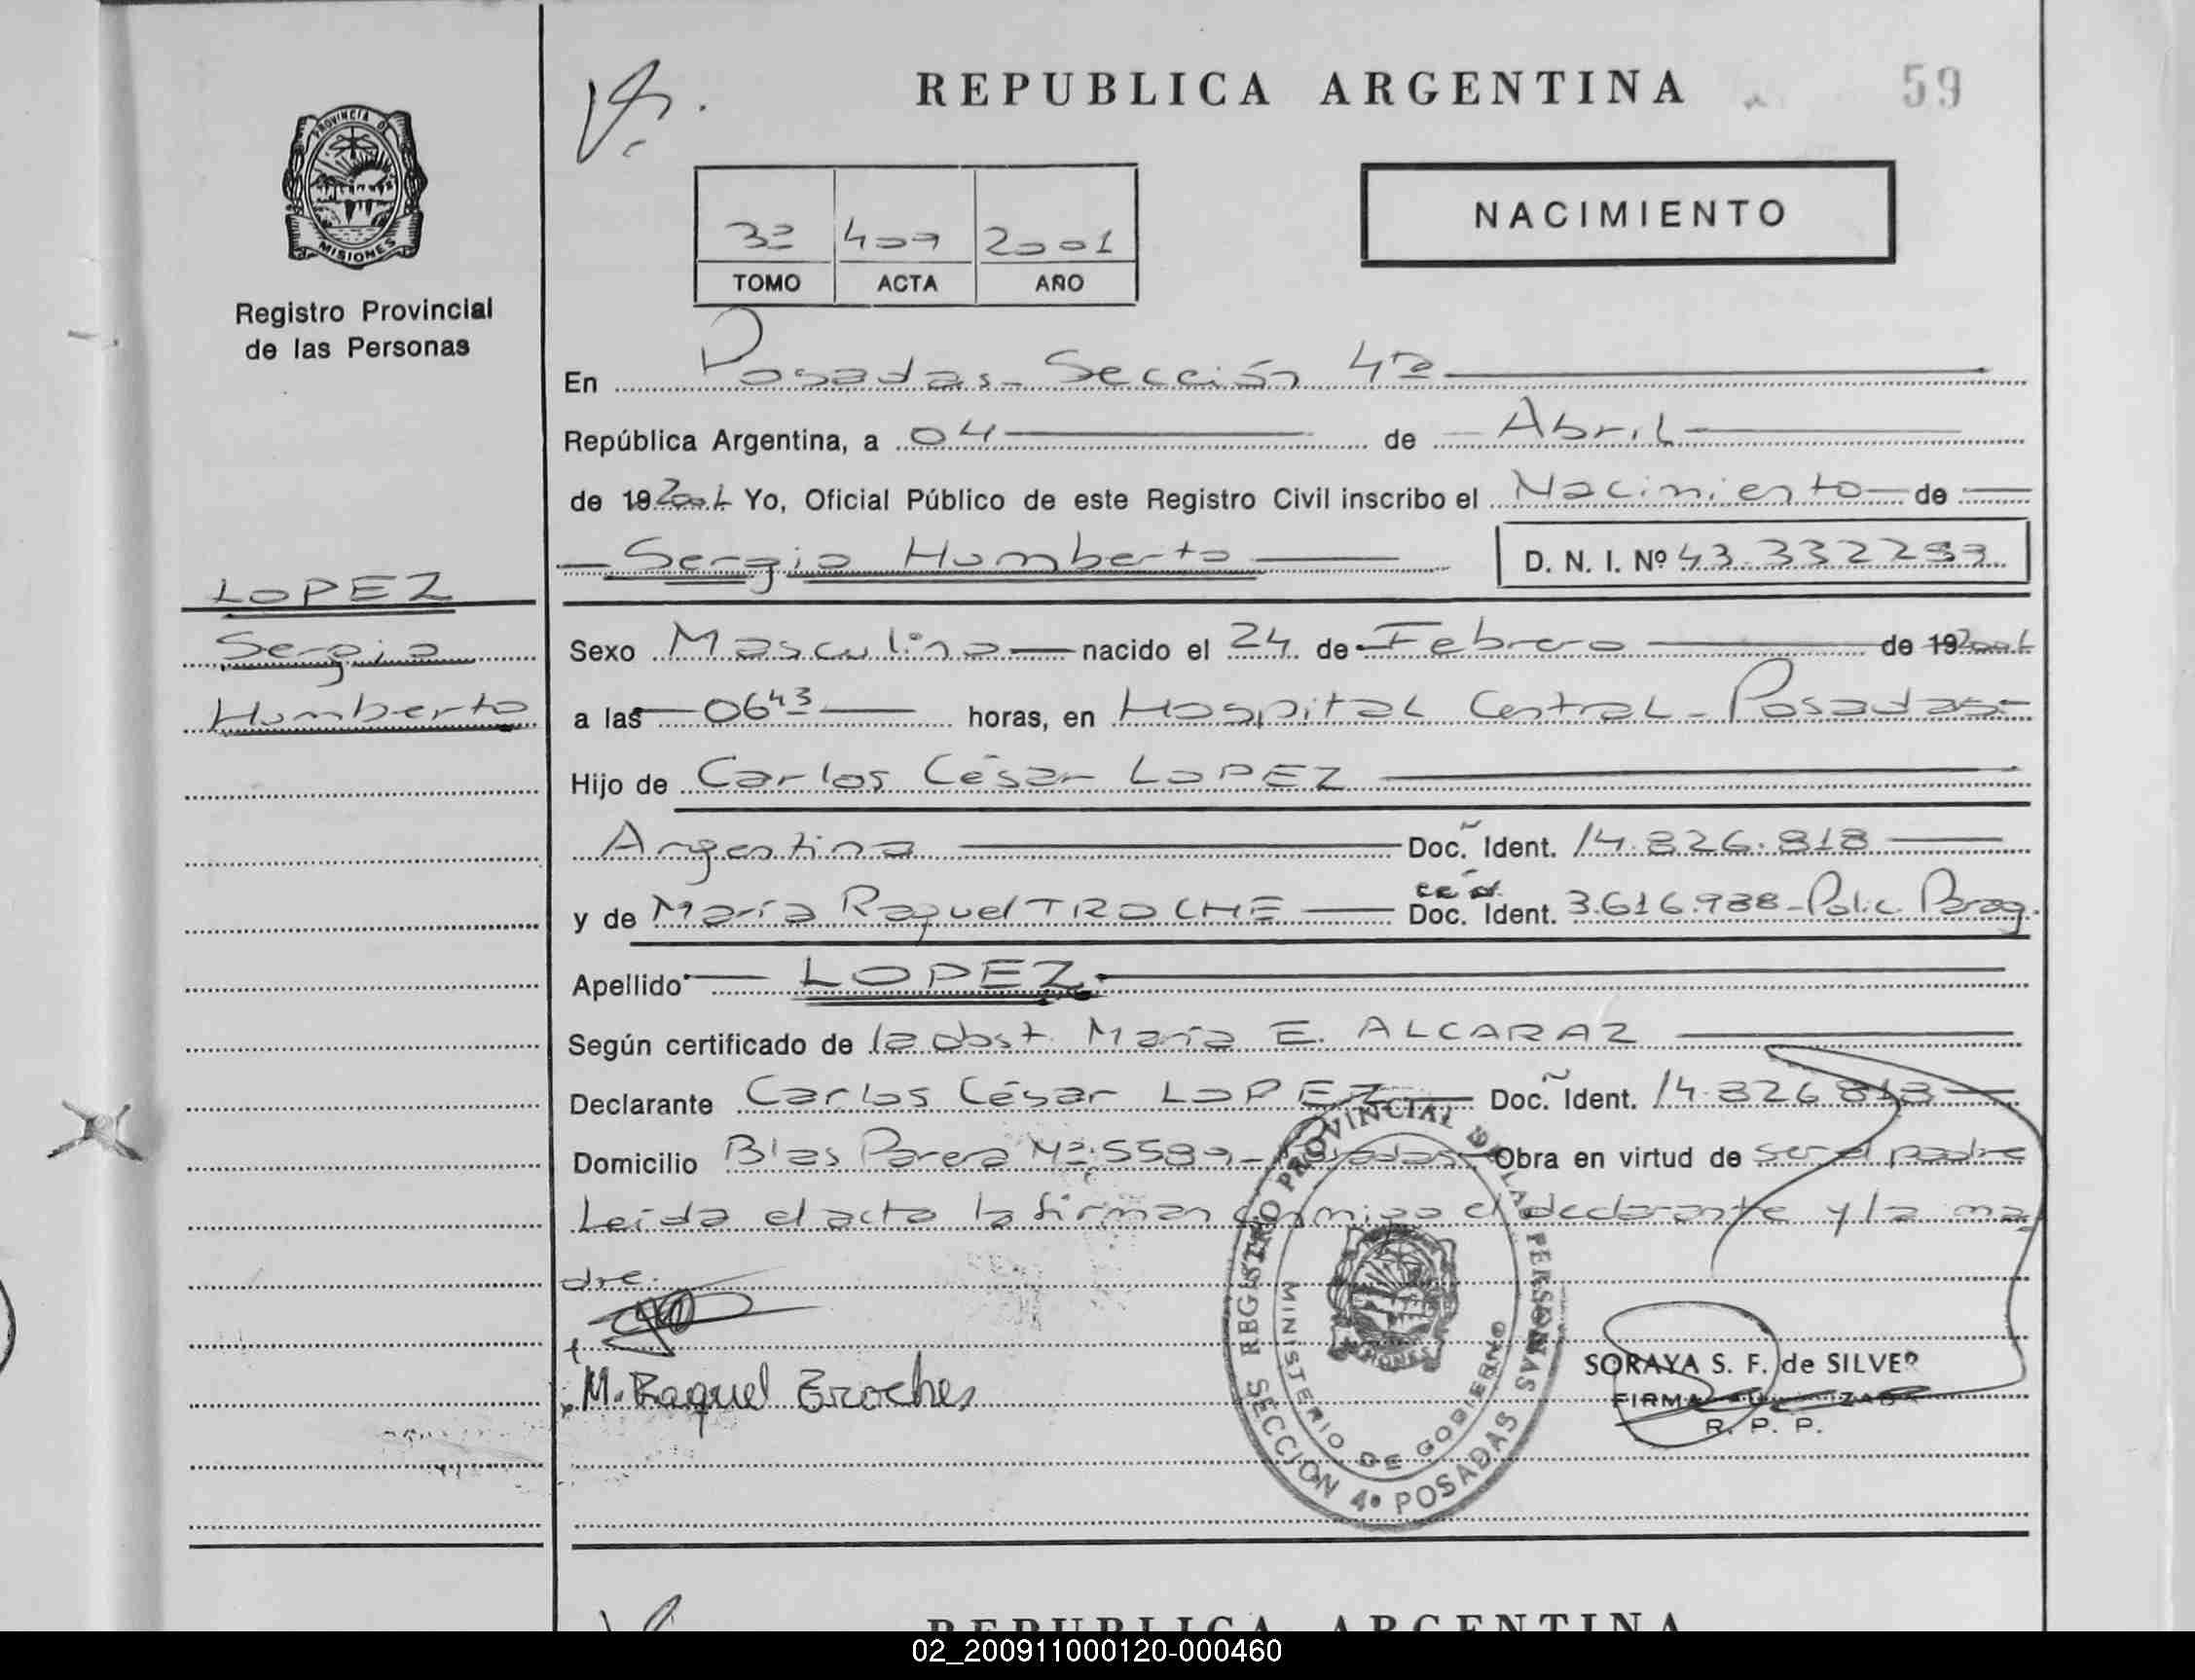 REPUBLICA ARGENTINA
59
PROVINCIA DE
MISIONES
Registro Provincial
de las Personas
3º 409 2001
TOMO ACTA AÑO
NACIMIENTO
En Posadas - Sección 4ª
República Argentina, a 04 de Abril
de 19 2001 Yo, Oficial Público de este Registro Civil inscribo el Nacimiento de
Sergio Humberto
D. N. I. Nº 43.332293
LOPEZ
Sergio
Humberto
Sexo Masculino nacido el 24 de Febrero de 19 2001
a las 06 43 horas, en Hospital Central - Posadas
Hijo de Carlos César LOPEZ
Argentina Doc. Ident. 14.826.818
y de María Raquel TROCHE Doc. Ident. 3.616.988 - Polic. Parag.
Apellido LOPEZ
Según certificado de la obst. María E. ALCARAZ
Declarante Carlos César LOPEZ Doc. Ident. 14.826.818
Domicilio Blas Parera Nº 5589 - Posadas - Obra en virtud de ser el padre
Leída el acta la firman conmigo el declarante y la ma
dre.
M. Raquel Troches
REGISTRO PROVINCIAL DE LAS PERSONAS
MINISTERIO DE GOBIERNO
SECCION 4ª POSADAS
SORAYA S. F. de SILVE
FIRMA
R. P. P.
REPUBLICA ARGENTINA
02_200911000120-000460